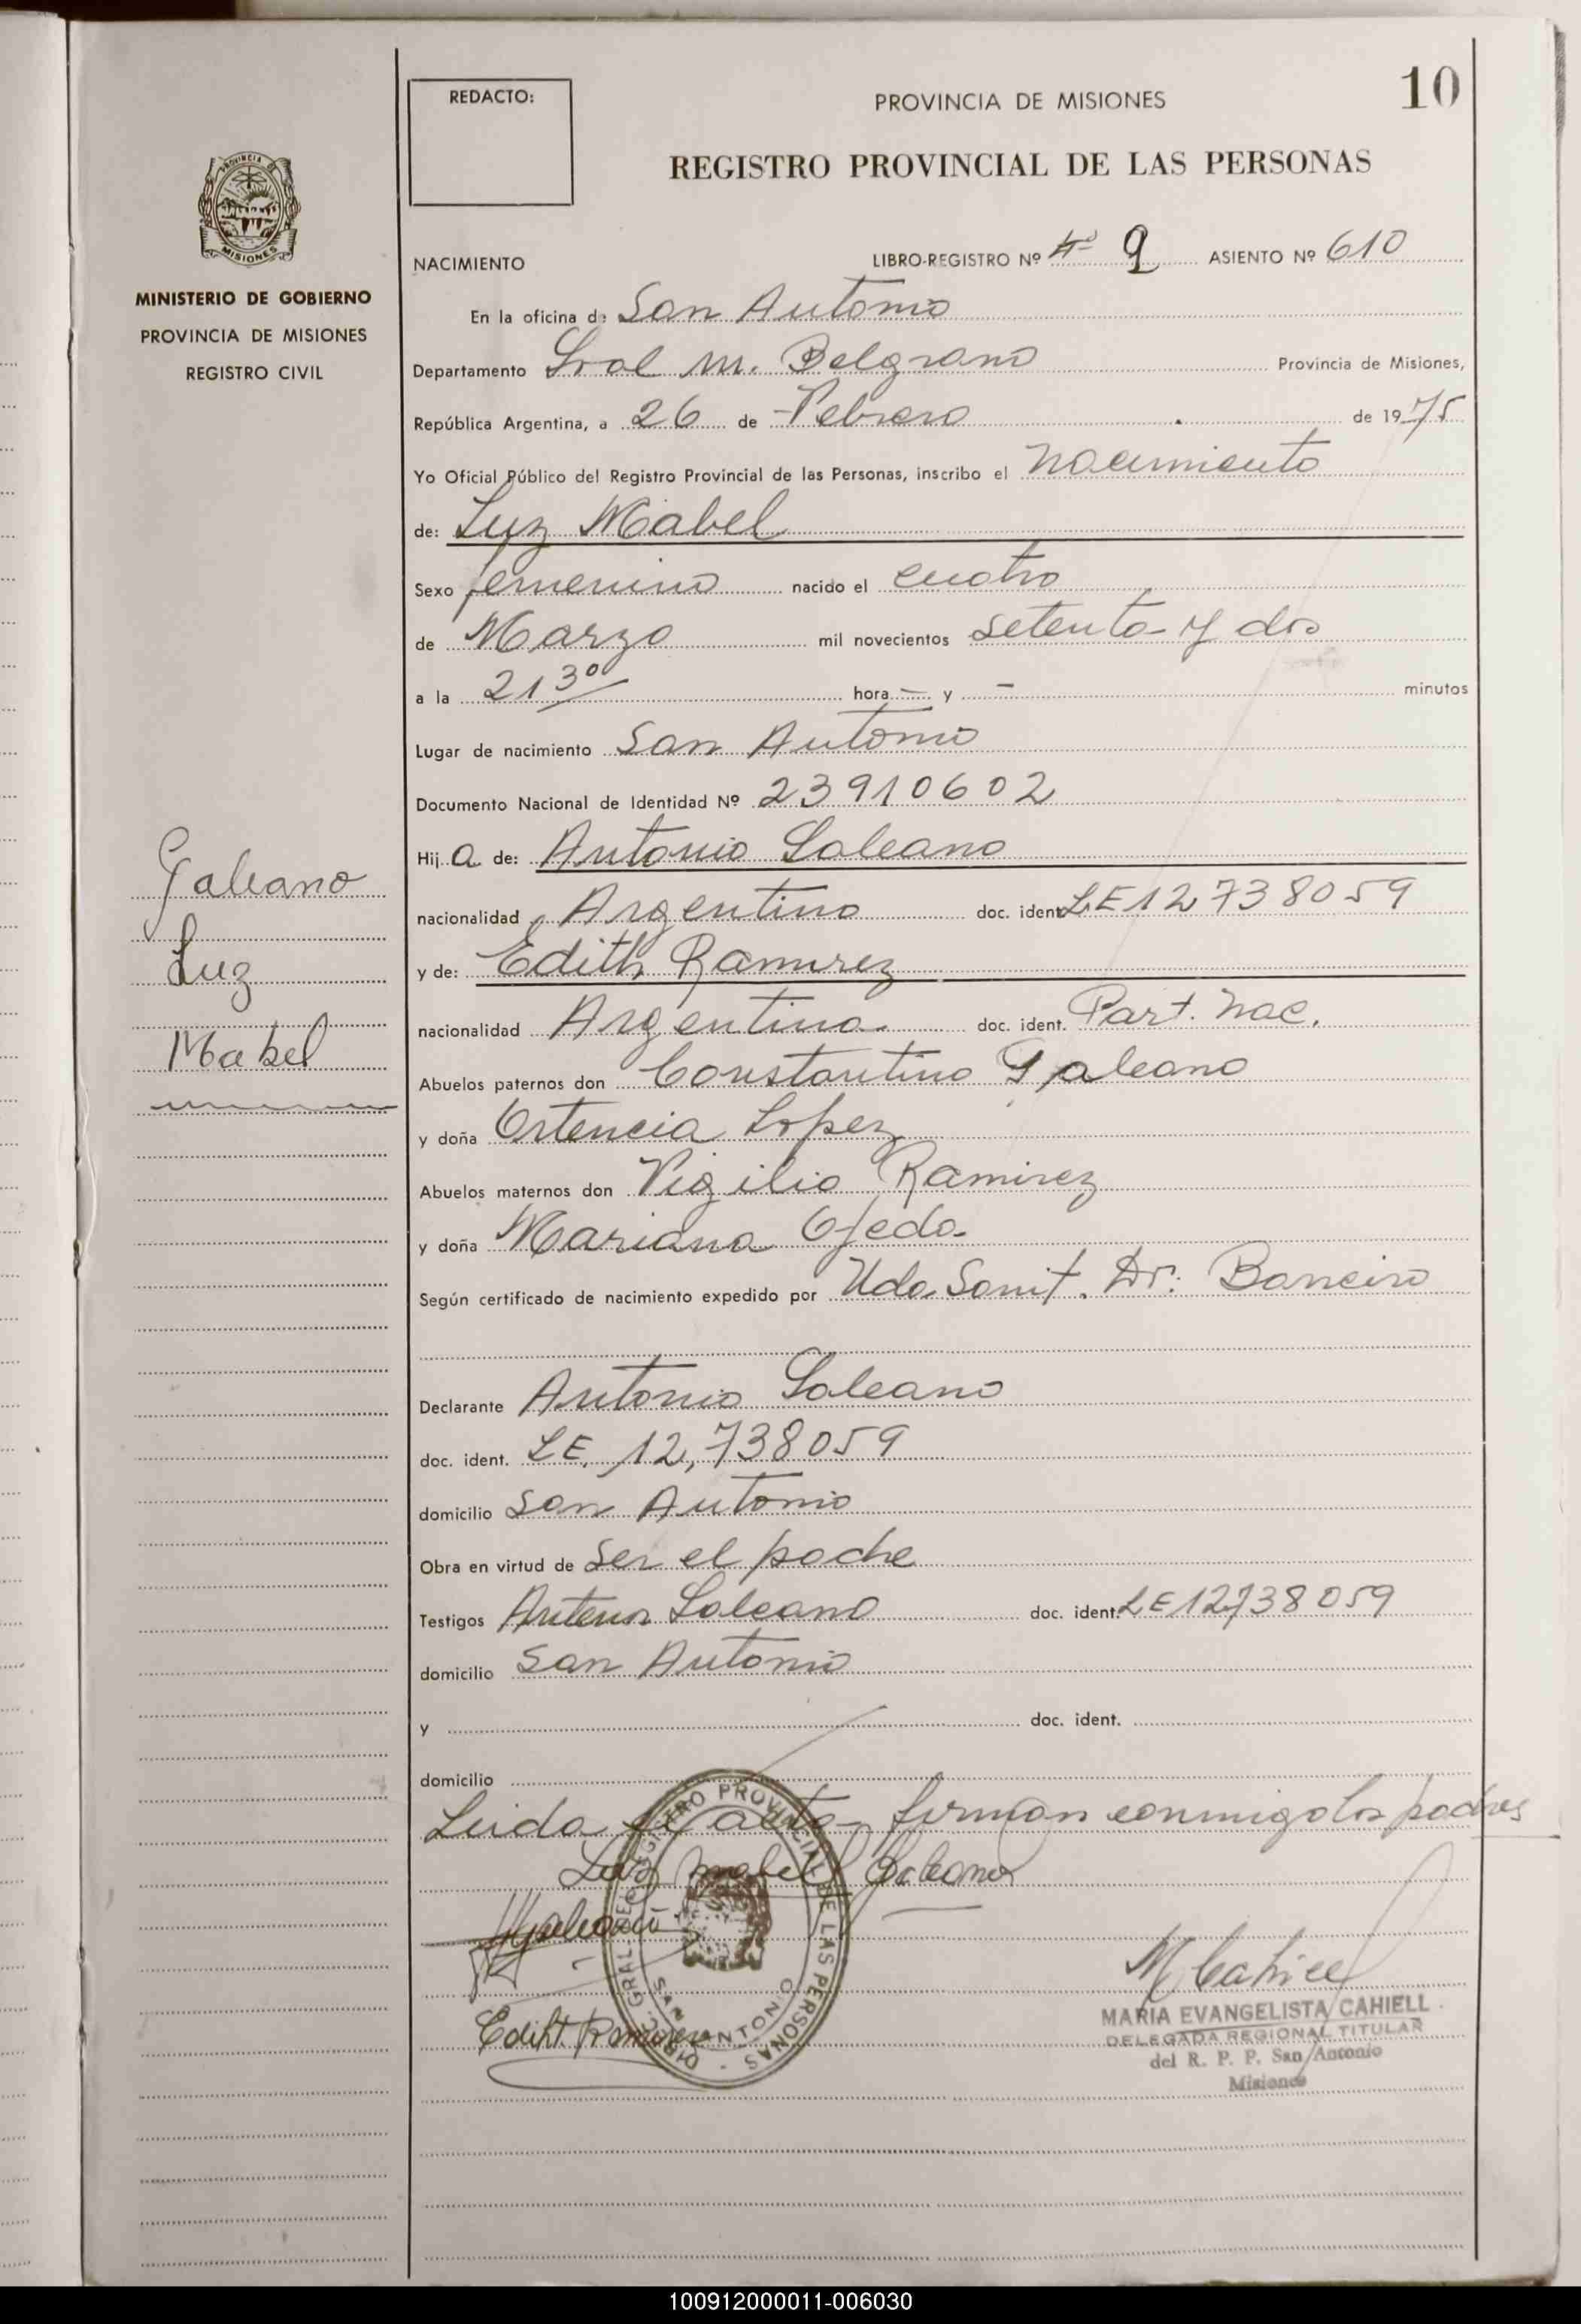 10
REDACTO:
PROVINCIA DE MISIONES
REGISTRO PROVINCIAL DE LAS PERSONAS
PROVINCIA DE
MISIONES
MINISTERIO DE GOBIERNO
PROVINCIA DE MISIONES
REGISTRO CIVIL
NACIMIENTO LIBRO-REGISTRO Nº 9 ASIENTO Nº 610
En la oficina de San Antonio
Departamento Gral M. Belgrano Provincia de Misiones,
República Argentina, a 26 de Febrero de 1975
Yo Oficial Público del Registro Provincial de las Personas, inscribo el nacimiento
de: Luz Mabel
Sexo femenino nacido el cuatro
de Marzo mil novecientos setenta y dos
a la 21 30 hora - y - minutos
Lugar de nacimiento San Antonio
Documento Nacional de Identidad Nº 23910602
Hij a de: Antonio Galeano
nacionalidad Argentino doc. ident. LE 12738059
y de: Edith Ramirez
nacionalidad Argentina doc. ident. Part. Nac.
Abuelos paternos don Constantino Galeano
y doña Ortencia Lopez
Abuelos maternos don Vigilio Ramirez
y doña Mariana Ojeda
Según certificado de nacimiento expedido por Uda Sanit. Dr. Barreiro
Declarante Antonio Galeano
doc. ident. LE. 12,738059
domicilio San Antonio
Obra en virtud de ser el padre
Testigos Antenor Galeano doc. ident. LE 12738059
domicilio San Antonio
y doc. ident.
domicilio
Leida el acta firman conmigo los padres
Luz Mabel Galeano
Galeano
Ediht Ramirez
Galeano
Luz
Mabel
DIREC. GRAL. DEL REGISTRO PROVINCIAL DE LAS PERSONAS
SAN ANTONIO
M Cahiell
MARIA EVANGELISTA CAHIELL
DELEGADA REGIONAL TITULAR
del R. P. P. San Antonio
Misiones
100912000011-006030